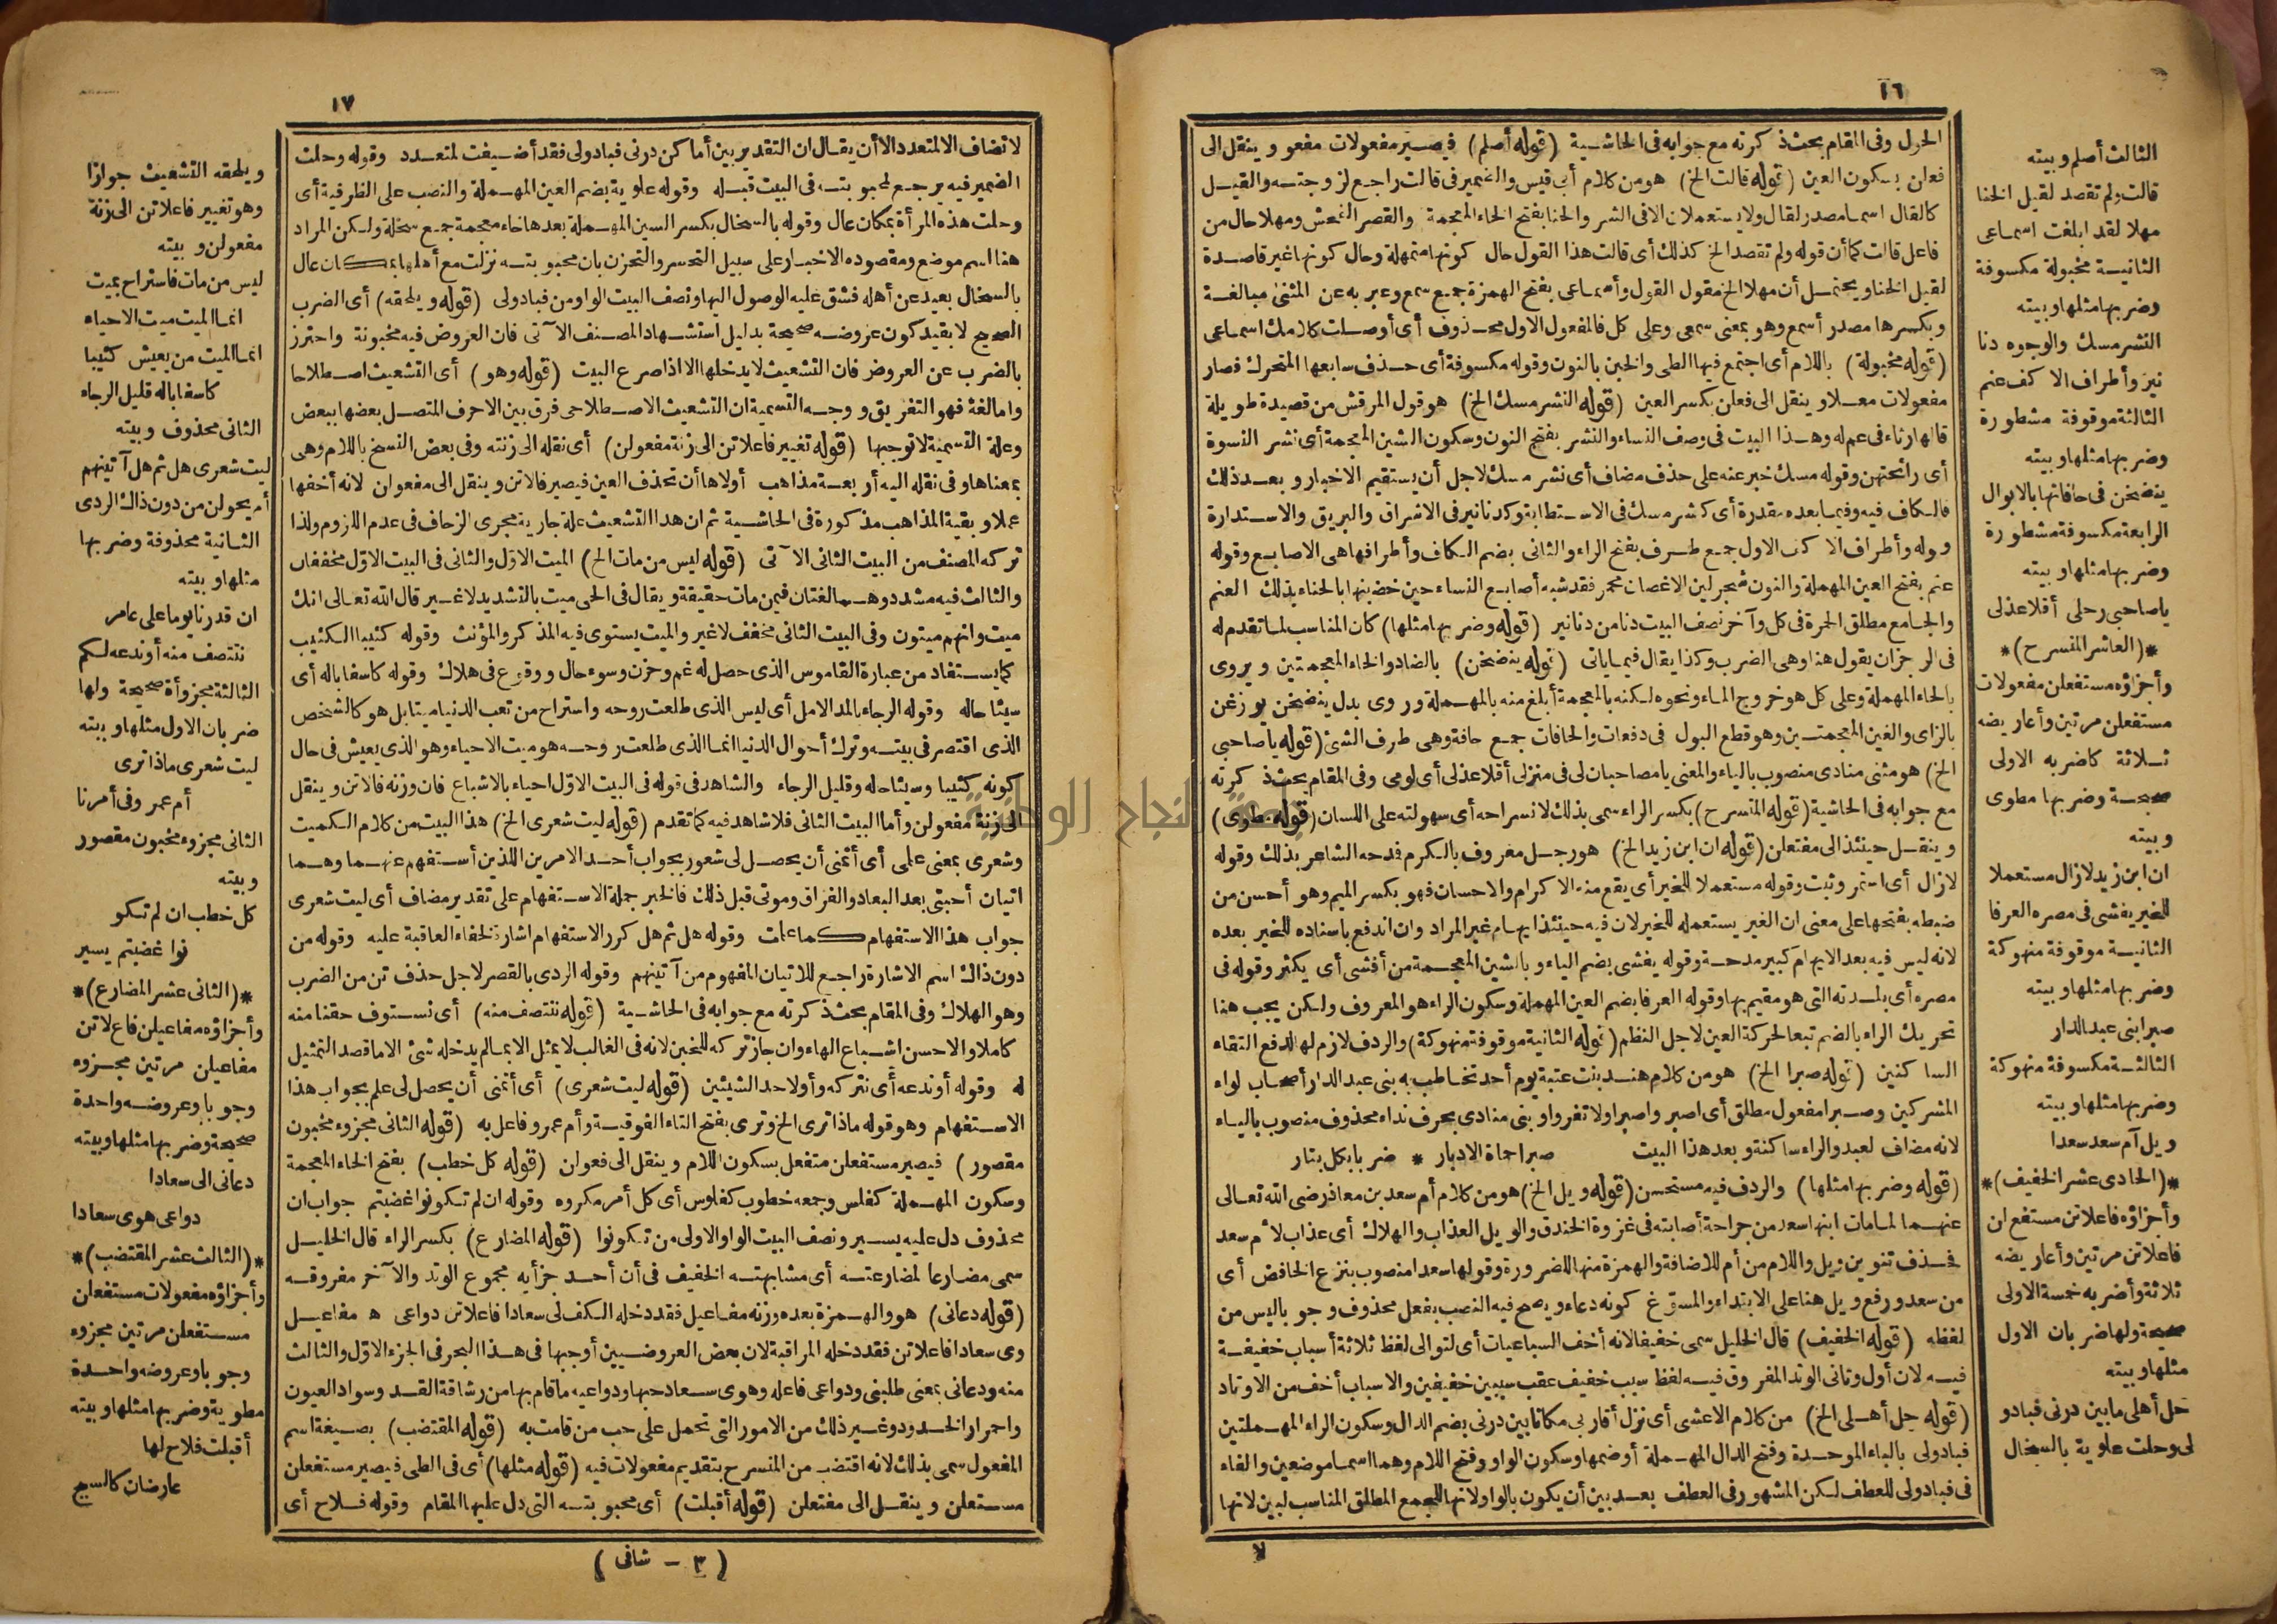 ١٦
الثالث أصلم وبيته
قالت ولم تقصد لقيل الخنا
مهلا لقد ابلغت اسماعى
الثانية مخبولة مكسوفة
وضربها مثلها وبيته
النشر مسك والوجوه دنا
نير وأطراف الاكف عنم
الثالثة موقوفة مشطورة
وضربها مثلها وبيته
ينضخن فى حافاتها بالابوال
الرابعة مكسوفة مشطورة
وضربها مثلها وبيته
ياصاحبى رحلى أقلا عذلى
*(العاشر المنسرح)*
وأجزاؤه مستفعلن مفعولات
مستفعلن مرتين وأعاريضه
ثلاثة كاضربه الاولى
صحيحة وضربها مطوى
وبيته
ان ابن زيد لازال مستعملا
للخير يفشى فى مصره العرفا
الثانية موقوفة منهوكة
وضربها مثلها وبيته
صبرا بنى عبد الدار
الثالثة مكسوفة منهوكة
وضربها مثلها وبيته
ويل آم سعد سعدا
*(الحادى عشر الخفيف)*
وأجزاؤه فاعلاتن مستفع لن
فاعلاتن مرتين وأعاريضه
ثلاثة وأضربه خمسة الاولى
صحيحة ولها ضربان الاول
مثلها وبيته
حل أهلى مابين درنى فبادو
لى وحلت علوية بالسخال
الحول وفى المقام بحث ذكرته مع جوابه فى الحاشية (قوله أصلم) فيصير مفعولات مفعو وينقل الى
فعلن بسكون العين (قوله قالت الخ) هو من كلام أبى قيس والضمير فى قالت راجع لزوجته والقيل
كالقال اسما مصدر لقال ولا يستعملان الا فى الشر والخنا بفتح الخاء المعجمة والقصر الفحش ومهلا حال من
فاعل قالت كما أن قوله ولم تقصد الخ كذلك أى قالت هذا القول حال كونها متمهلة وحال كونها غير قاصدة
لقيل الخنا ويحتمل أن مهلا الخ مقول القول وأسماعى بفتح الهمزة جمع سمع وعبر به عن المثنى مبالغة
وبكسرها مصدر أسمع وهو بمعنى سمعى وعلى كل فالمفعول الاول محذوف أى أوصلت كلامك اسماعى
(قوله مخبولة) باللام أى اجتمع فيها الطى والخبن بالنون وقوله مكسوفة أى حذف سابعها المتحرك فصار
مفعولات معلا وينقل الى فعلن بكسر العين (قوله النشر مسك الخ) هو قول المرقش من قصيدة طويلة
قالها رثاء فى عم له وهذا البيت فى وصف النساء والنشر بفتح النون وسكون الشين المعجمة أى نشر النسوة
أى رائحتهن وقوله مسك خبر عنه على حذف مضاف أى نشر مسك لاجل أن يستقيم الاخبار وبعد ذلك
فالكاف فيه وفيما بعده مقدرة أى كنشر مسك فى الاستطابة وكدنانير فى الاشراق والبريق والاستدارة
وقوله وأطراف الاكف الاول جمع طرف بفتح الراء والثانى بضم الكاف وأطرافها هى الاصابع وقوله
عنم بفتح العين المهملة والنون شجر لين الاغصان محمر فقد شبه أصابع النساء حين خضبنها بالحناء بذلك العنم
والجامع مطلق الحمرة فى كل وآخر نصف البيت دنا من دنانير (قوله وضربها مثلها) كان المناسب لما تقدم له
فى الرجز ان يقول هنا وهى الضرب وكذا يقال فيما ياتى (قوله ينضخن) بالضاد والخاء المعجمتين ويروى
بالحاء المهملة وعلى كل هو خروج الماء ونحوه لكنه بالمعجمة أبلغ منه بالمهملة وروى بدل ينضخن يوزغن
بالزاى والغين المعجمتين وهو قطع البول فى دفعات والحافات جمع حافة وهى طرف الشئ (قوله ياصاحبى
الخ) هو مثنى منادى منصوب بالياء والمعنى يامصاحبان لى فى منزلى أقلا عذلى أى لومى وفى المقام بحث ذكرته
مع جوابه فى الحاشية (قوله المنسرح) بكسر الراء سمى بذلك لانسراحه أى سهولته على اللسان (قوله مطوى)
وينقل حينئذ الى مفتعلن (قوله ان ابن زيد الخ) هو رجل معروف بالكرم فدحه الشاعر بذلك وقوله
لازال أى استمر وثبت وقوله مستعملا للخير أى يقع منه الاكرام والاحسان فهو بكسر الميم وهو أحسن من
ضبطه بفتحها على معنى ان الغير يستعمله للخير لان فيه حينئذ ايهام غير المراد وان اندفع باسناده للخير بعده
لانه ليس فيه بعد الايهام كبير مدحة وقوله يفشى بضم الياء وبالشين المعجمة من أفشى أى يكثر وقوله فى
مصره أى بلدته التى هو مقيم بها وقوله العرفا بضم العين المهملة وسكون الراء هو المعروف ولكن يجب هنا
تحريك الراء بالضم تبعا لحركة العين لاجل النظم (قوله الثانية موقوفة منهوكة) والردف لازم لها لدفع التقاء
الساكنين (قوله صبرا الخ) هو من كلام هند بنت عتبة يوم أحد تخاطب به بنى عبد الدار أصحاب لواء
المشركين وصبرا مفعول مطلق أى اصبر واصبرا ولا تفروا وبنى منادى بحرف نداء محذوف منصوب بالياء
لانه مضاف لعبد والراء ساكنة وبعد هذا البيت صبرا حماة الادبار * ضربا بكل بتار
(قوله وضربها مثلها) والردف فيه مستحسن (قوله ويل الخ) هو من كلام أم سعد بن معاذ رضى الله تعالى
عنهما لما مات ابنها سعد من جراحة أصابته فى غزوة الخندق والويل العذاب والهلاك أى عذاب لام سعد
فحذف تنوين ويل واللام من أم للاضافة والهمزة منها للضرورة وقولها سعدا منصوب بنزع الخافض أى
من سعد ورفع ويل هنا على الابتداء والمسوّغ كونه دعاء ويصح فيه النصب بفعل محذوف وجوبا ليس من
لفظه (قوله الخفيف) قال الخليل سمى خفيفا لانه أخف السباعيات أى لتوالى لفظ ثلاثة أسباب خفيفة
فيه لان أول وثانى الوتد المفروق فيه لفظ سبب خفيف عقب سببين خفيفين والاسباب أخف من الاوتاد
(قوله حل أهلى الخ) من كلام الاعشى أى نزل أقاربى مكانا بين درنى بضم الدال وسكون الراء المهملتين
فبادولى بالباء الموحدة وفتح الدال المهملة أو ضمها وسكون الواو وفتح اللام وهما اسما موضعين والفاء
فى فبادولى للعطف لكن المشهور فى العطف بعد بين أن يكون بالواو لانها للجمع المطلق المناسب لبين لانها
لا
١٧
لا تضاف الا لمتعدد الا أن يقال ان التقدير بين أماكن درنى فبادولى فقد أضيفت لمتعدد وقوله وحلت
الضمير فيه يرجع لمحبوبته فى البيت قبله وقوله علوية بضم العين المهملة والنصب على الظرفية أى
وحلت هذه المرأة بمكان عال وقوله بالسخال بكسر السين المهملة بعدها خاء معجمة جمع سخلة ولكن المراد
هنا اسم موضع ومقصوده الاخبار على سبيل التحسر والتحزن بان محبوبته نزلت مع أهلها بمكان عال
بالسخال بعيد عن أهله فشق عليه الوصول اليها ونصف البيت الواو من فبادولى (قوله ويلحقه) أى الضرب
الصحيح لا بقيد كون عروضه صحيحة بدليل استشهاد المصنف الآتى فان العروض فيه مخبونة واحترز
بالضرب عن العروض فان التشعيث لا يدخلها الا اذا صرع البيت (قوله وهو) أى التشعيث اصطلاحا
وامالغة فهو التفريق ووجه التسمية ان التشعيث الاصطلاحى فرق بين الاحرف المتصل بعضها ببعض
وعلة التسمية لا توجبها (قوله تغيير فاعلاتن الى زنة مفعولن) أى نقله الى زنته وفى بعض النسخ باللام وهى
بمعناها وفى نقله اليه أربعة مذاهب أولاها أن تحذف العين فيصير فالاتن وينقل الى مفعولن لانه أخفها
عملا وبقية المذاهب مذكورة فى الحاشية ثم ان هذا التشعيث علة جارية مجرى الزحاف فى عدم اللزوم ولذا
تركه المصنف من البيت الثانى الآتى (قوله ليس من مات الخ) الميت الاوّل والثانى فى البيت الاوّل مخففان
والثالث فيه مشدد وهما لغتان فيمن مات حقيقة ويقال فى الحى ميت بالتشديد لا غير قال الله تعالى انك
ميت وانهم ميتون وفى البيت الثانى مخفف لا غير والميت يستوى فيه المذكر والمؤنث وقوله كئيبا الكئيب
كما يستفاد من عبارة القاموس الذى حصل له غم وحزن وسوء حال ووقوع فى هلاك وقوله كاسفا باله أى
سيئا حاله وقوله الرجاء بالمد الامل أى ليس الذى طلعت روحه واستراح من تعب الدنيا ميتا بل هو كالشخص
الذى اقتصر فى بيته وترك أحوال الدنيا انما الذى طلعت روحه هو ميت الاحياء وهو الذى يعيش فى حال
كونه كئيبا وسيئا حاله وقليل الرجاء والشاهد فى قوله فى البيت الاوّل احياء بالاشباع فان وزنه فالاتن وينقل
الى زنة مفعولن وأما البيت الثانى فلا شاهد فيه كما تقدم (قوله ليت شعرى الخ) هذا البيت من كلام الكميت
وشعرى بمعنى علمى أى أتمنى أن يحصل لى شعور بجواب أحد الامرين اللذين أستفهم عنهما وهما
اتيان أحبتى بعد البعاد والفراق وموتى قبل ذلك فالخبر جملة الاستفهام على تقدير مضاف أى ليت شعرى
جواب هذا الاستفهام كما علمت وقوله هل ثم هل كرر الاستفهام اشارة لخفاء العاقبة عليه وقوله من
دون ذاك اسم الاشارة راجع للاتيان المفهوم من آتينهم وقوله الردى بالقصر لاجل حذف تن من الضرب
وهو الهلاك وفى المقام بحث ذكرته مع جوابه فى الحاشية (قوله ننتصف منه) أى نستوف حقنا منه
كاملا والاحسن اشباع الهاء وان جاز تركه للخبن لانه فى الغالب لا يمثل الا بما لم يدخله شئ الا ما قصد التمثيل
له وقوله أو ندعه أى نتركه وأو لاحد الشيئين (قوله ليت شعرى) أى أتمنى أن يحصل لى علم بجواب هذا
الاستفهام وهو قوله ماذا ترى الخ وترى بفتح التاء الفوقية وأم عمرو فاعل به (قوله الثانى مجزوء مخبون
مقصور) فيصير مستفعلن متفعل بسكون اللام وينقل الى فعولن (قوله كل خطب) بفتح الخاء المعجمة
وسكون المهملة كفلس وجمعه خطوب كفلوس أى كل أمر مكروه وقوله ان لم تكونوا غضبتم جواب ان
محذوف دل عليه يسير ونصف البيت الواو الاولى من تكونوا (قوله المضارع) بكسر الراء قال الخليل
سمى مضارعا لمضارعته أى مشابهته الخفيف فى أن أحد جزأيه مجموع الوتد والآخر مفروقه
(قوله دعانى) هو والهمزة بعده وزنه مفاعيل فقد دخله الكف لى سعادا فاعلاتن دواعى ه مفاعيل
وى سعادا فاعلاتن فقد دخله المراقبة لان بعض العروضيين أوجبها فى هذا البحر فى الجزء الاوّل والثالث
منه ودعانى بمعنى طلبنى ودواعى فاعله وهوى سعاد حبها ودواعيه ما قام بها من رشاقة القد وسواد العيون
واحمرار الخدود وغير ذلك من الامور التى تحمل على حب من قامت به (قوله المقتضب) بصيغة اسم
المفعول سمى بذلك لانه اقتضب من المنسرح بتقديم مفعولات فيه (قوله مثلها) أى فى الطى فيصير مستفعلن
مستعلن وينقل الى مفتعلن (قوله أقبلت) أى محبوبته التى دل عليها المقام وقوله فلاح أى
ويلحقه التشعيث جوازا
وهو تغيير فاعلاتن الى زنة
مفعولن وبيته
ليس من مات فاستراح بميت
انما الميت ميت الاحياء
انما الميت من يعيش كئيبا
كاسفا باله قليل الرجاء
الثانى محذوف وبيته
ليت شعرى هل ثم هل آتينهم
أم يحولن من دون ذاك الردى
الثانية محذوفة وضربها
مثلها وبيته
ان قدرنا يوما على عامر
ننتصف منه أو ندعه لكم
الثالثة مجزوأة صحيحة ولها
ضربان الاول مثلها وبيته
ليت شعرى ماذا ترى
أم عمرو فى أمرنا
الثانى مجزوء مخبون مقصور
وبيته
كل خطب ان لم تكو
نوا غضبتم يسير
*(الثانى عشر المضارع)*
وأجزاؤه مفاعيلن فاع لاتن
مفاعيلن مرتين مجزوء
وجوبا وعروضه واحدة
صحيحة وضربها مثلها وبيته
دعانى الى سعادا
دواعى هوى سعادا
*(الثالث عشر المقتضب)*
وأجزاؤه مفعولات مستفعلن
مستفعلن مرتين مجزوء
وجوبا وعروضه واحدة
مطوية وضربها مثلها وبيته
أقبلت فلاح لها
عارضان كالسبج
(٣ - شافى)